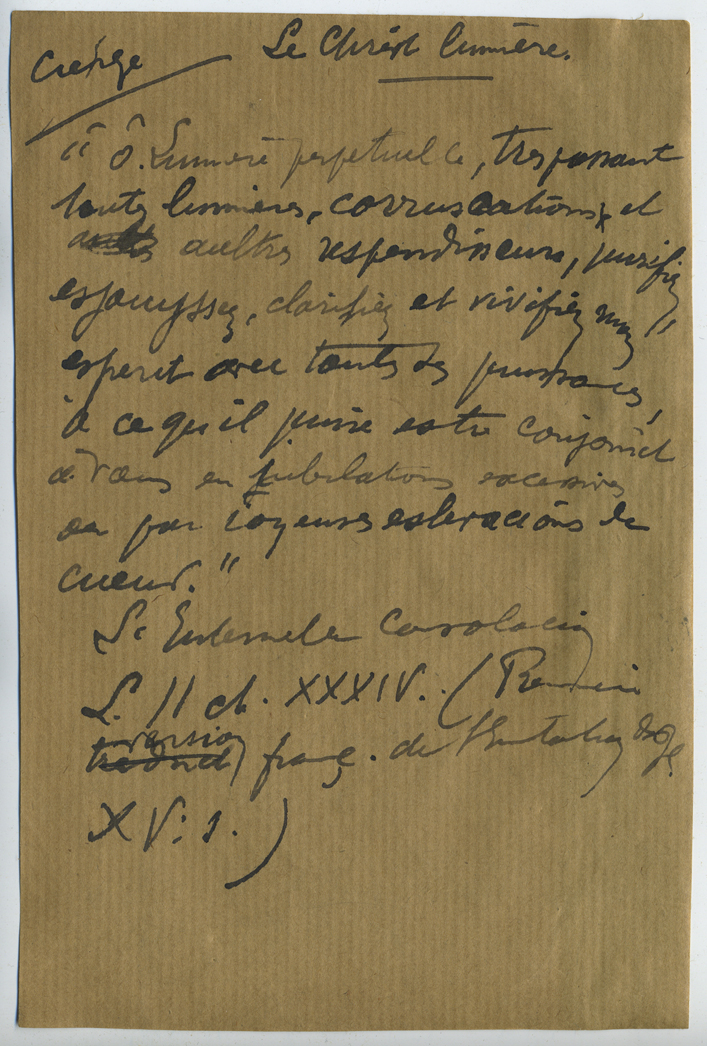 Cierge
Le Christ lumière.
" ô. Lumiere perpetuelle, trespassant
toutes lumieres, corruscations, et
aultres respendisseurs, purifiez
esjouyssez, clarifiez et vivifiez mon
esperit avec toutes ses puissances,
à ce qu'il puisse estre conjoinct
à vous en jubilations excessives
ou par ioyeuses exleracions de
cueur. "
L'Internelle Consolacion
L. II ch. XXXIV. (Première
version franç. de l'Imitation
XV: s.)